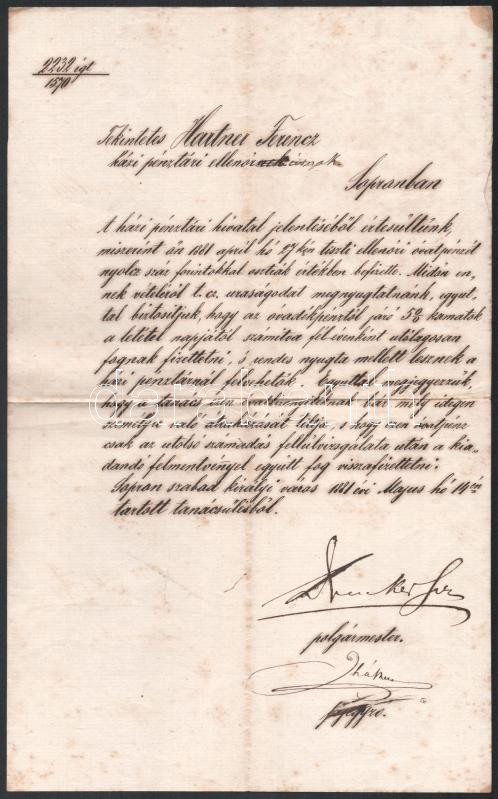 2232 igt
1570
Tekintetes Hartner Ferencz
házi pénztári ellenőr urnak
Sopronban
A házi pénztári hivatal jelentéséből értesültünk,
miszerint ön 1881 april hó 27 kén tiszti ellenőri óvatpénzét
nyolcz száz forintokkal osztrák értékben befizette. Midőn en-
nek vételéről t. cz. uraságodat megnyugtatnánk, egyut-
tal biztosítjuk, hogy az ovadékpénztől járó 5% kamatok
a letétel napjától számítva fél évenként utólagosan
fognak fizettetni, s rendes nyugta mellett lesznek a
házi pénztárnál felvehetők. Ezuttal megjegyezzük,
hogy a tanács ezen idegen
számítva való tiltja, s hogy ezen óvatpénz
csak az utolsó számadás felülvizsgálata után a kia-
dandó felmentvényel együtt fog visszafizettetni.
Sopron szabad királyi város 1881 évi Majus hó 14 én
tartott tanácsüléséből.
polgármester.